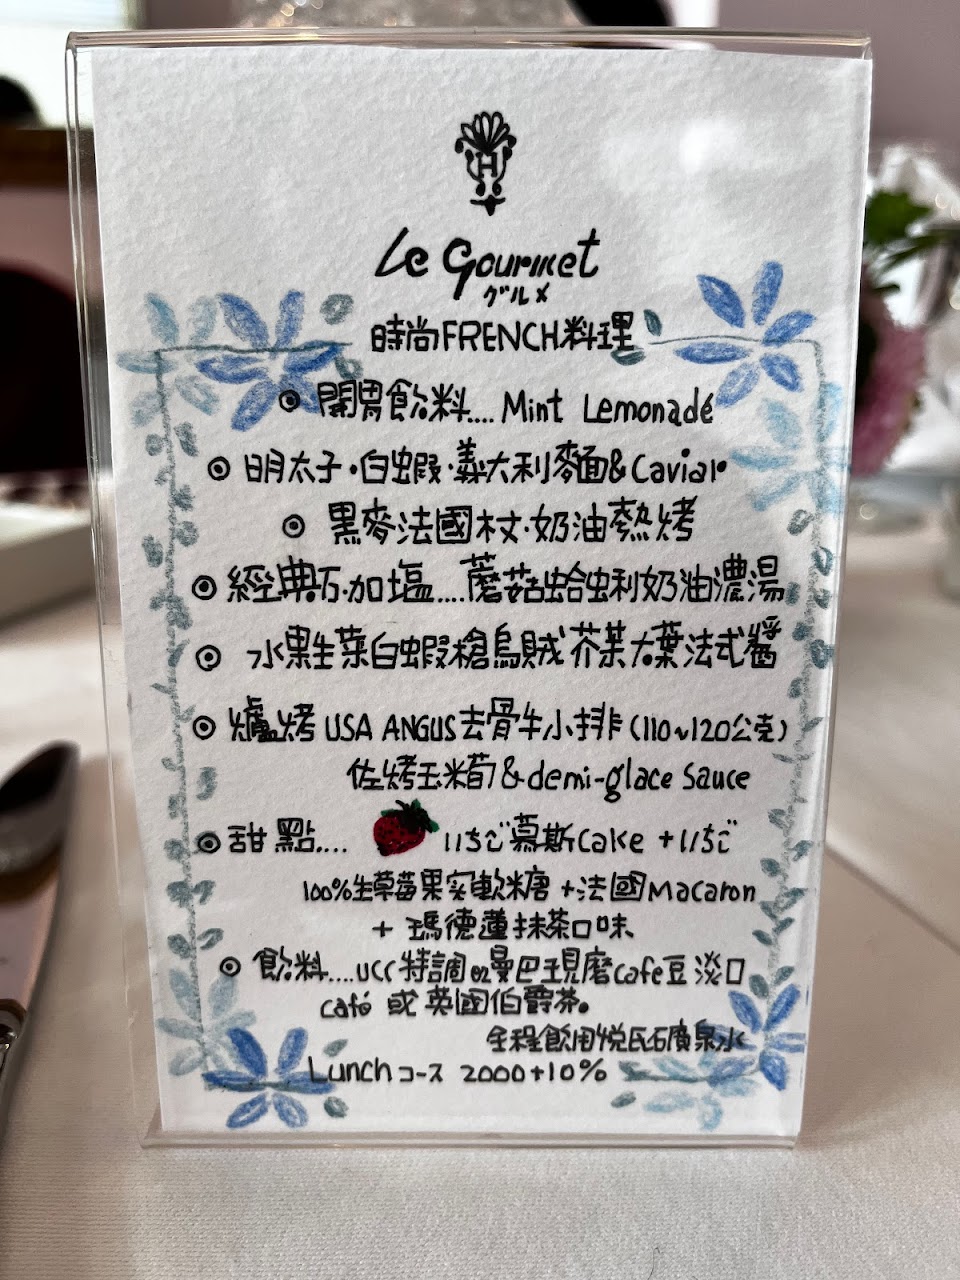 H
Le Gourmet
グルメ
時尚FRENCH料理
◎ 開胃飲料.... Mint Lemonadé
◎ 明太子·白蝦·義大利麵&Caviar
◎ 黑麥法國杖·奶油熱烤
◎ 經典巧加塩....蘑菇蛤蜊奶油濃湯
◎ 水果生菜白蝦槍烏賊芥茉大葉法式醬
◎ 爐烤USA ANGUS去骨牛小排(110~120公克)
佐烤玉米筍&demi-glace Sauce
◎ 甜點.... いちご慕斯Cake +いちご
100%生草莓果实軟糖 +法國Macaron
+ 瑪德蓮抹茶口味
◎ 飲料....UCC特調or曼巴現磨Cafe豆淡口
Café 或 英國伯爵茶。
全程飲用悅氏礦泉水
Lunchコース 2000+10%